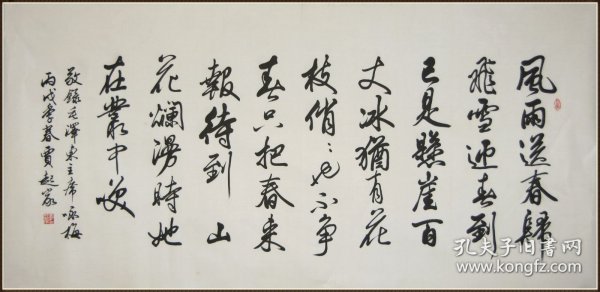 風雨送春歸
飛雪迎春到
已是懸崖百
丈冰猶有花
枝俏俏也不争
春只把春来
報待到山
花爛漫時她
在叢中笑
敬錄毛澤东主席咏梅
丙戌季春賈起家
孔夫子旧书网
www.kongfz.com